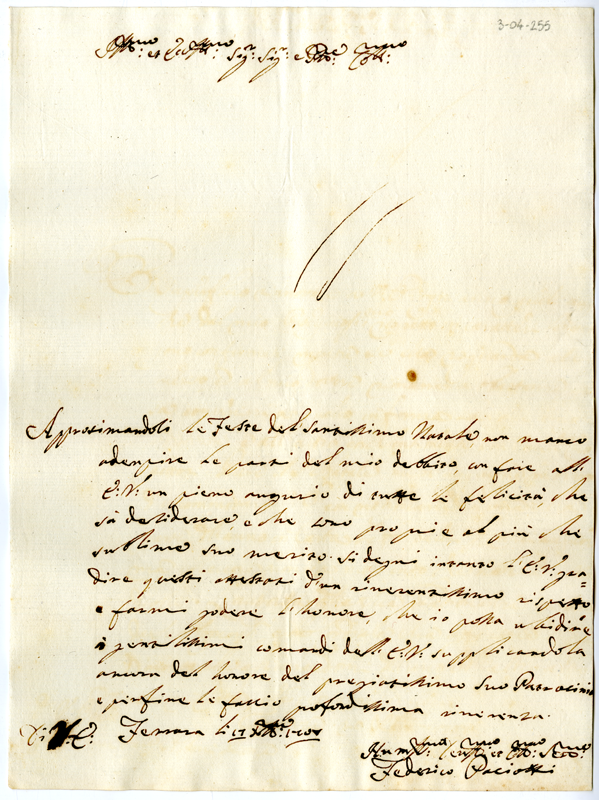 3-04-255
Ill:mo et Ecc:mo Sig:r Sig:r e Pron:e Coll:mo
Approsimandosi le Feste del Santissimo Natale, non manco
adempire le parti del mio debbito, con fare all
E: V: un pieno augurio di tutte le felicità, che
sà desiderare, e che sono proprie al più che
sublime suo merito. si degni intanto l'E: V: gra=
dire questi attestati d'un riverentissimo rispetto
e farmi godere l'honore, che io possa ubidire
i gentilissimi comandi dell: E: V: supplicandola
ancora del honore del pregiatissimo suo Patrocinio
e perfine le faccio profondissima riverenza.
Di V: E: Ferrara li
Federico Paciotti